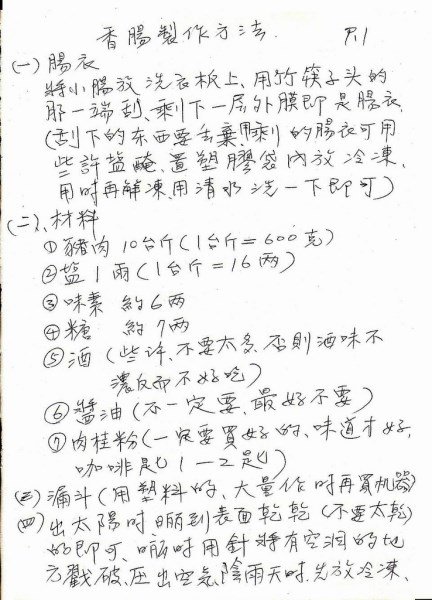 香腸製作方法 P.1
(一) 腸衣
將小腸放洗衣板上、用竹筷子头的
那一端刮、剩下一层外膜即是腸衣.
(刮下的东西要去棄、剩的腸衣可用
些許盐醃、置塑膠袋內放冷凍、
用时再解凍、用清水洗一下即可)
(二)、材料
①豬肉 10台斤(1台斤=600克)
②盐 1兩(1台斤=16两)
③味素 約6两
④糖 約7两
⑤酒 (些许、不要太多、否則酒味不
濃反而不好吃)
⑥醬油(不一定要、最好不要)
⑦肉桂粉(一定要買好的、味道才好、
咖啡匙1一2匙)
(三)漏斗(用塑料的、大量作时再買机器)
(四)出太陽时晒到表面乾乾(不要太乾)
的即可、晒时用針將有空洞的地
方戳破、压出空氣、陰雨天时、先放冷凍、